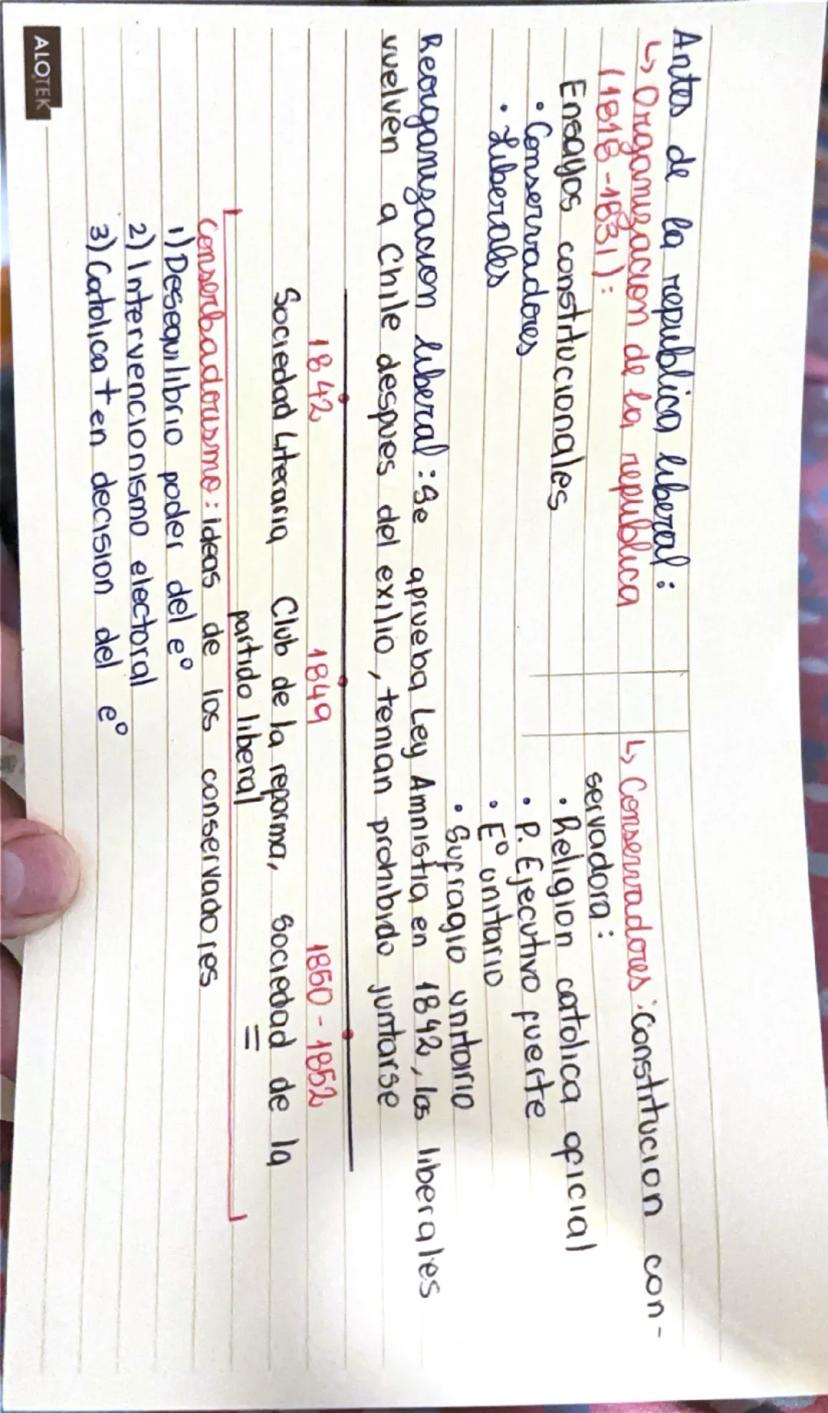 Antes de la republica liberal:
↳ Organizacion de la republica
(1818-1831):
Ensayos constitucionales
• Conservadores
• Liberales
↳ Conservadores: Constitucion con-
servadora:
• Religion catolica oficial
• P. Ejecutivo fuerte
• E° unitario
• Sufragio unitario
Reorganizacion liberal: Se aprueba Ley Amnistia en 1842, los liberales
vuelven a Chile despues del exilio, tenian prohibido juntarse
1842 1849 1850-1852
Sociedad Literaria Club de la reforma, Sociedad de la
partido liberal =
Conserbadorismo: ideas de los conservadores
1) Desequilibrio poder del e°
2) Intervencionismo electoral
3) Catolica + en decision del e°
ALOTEK